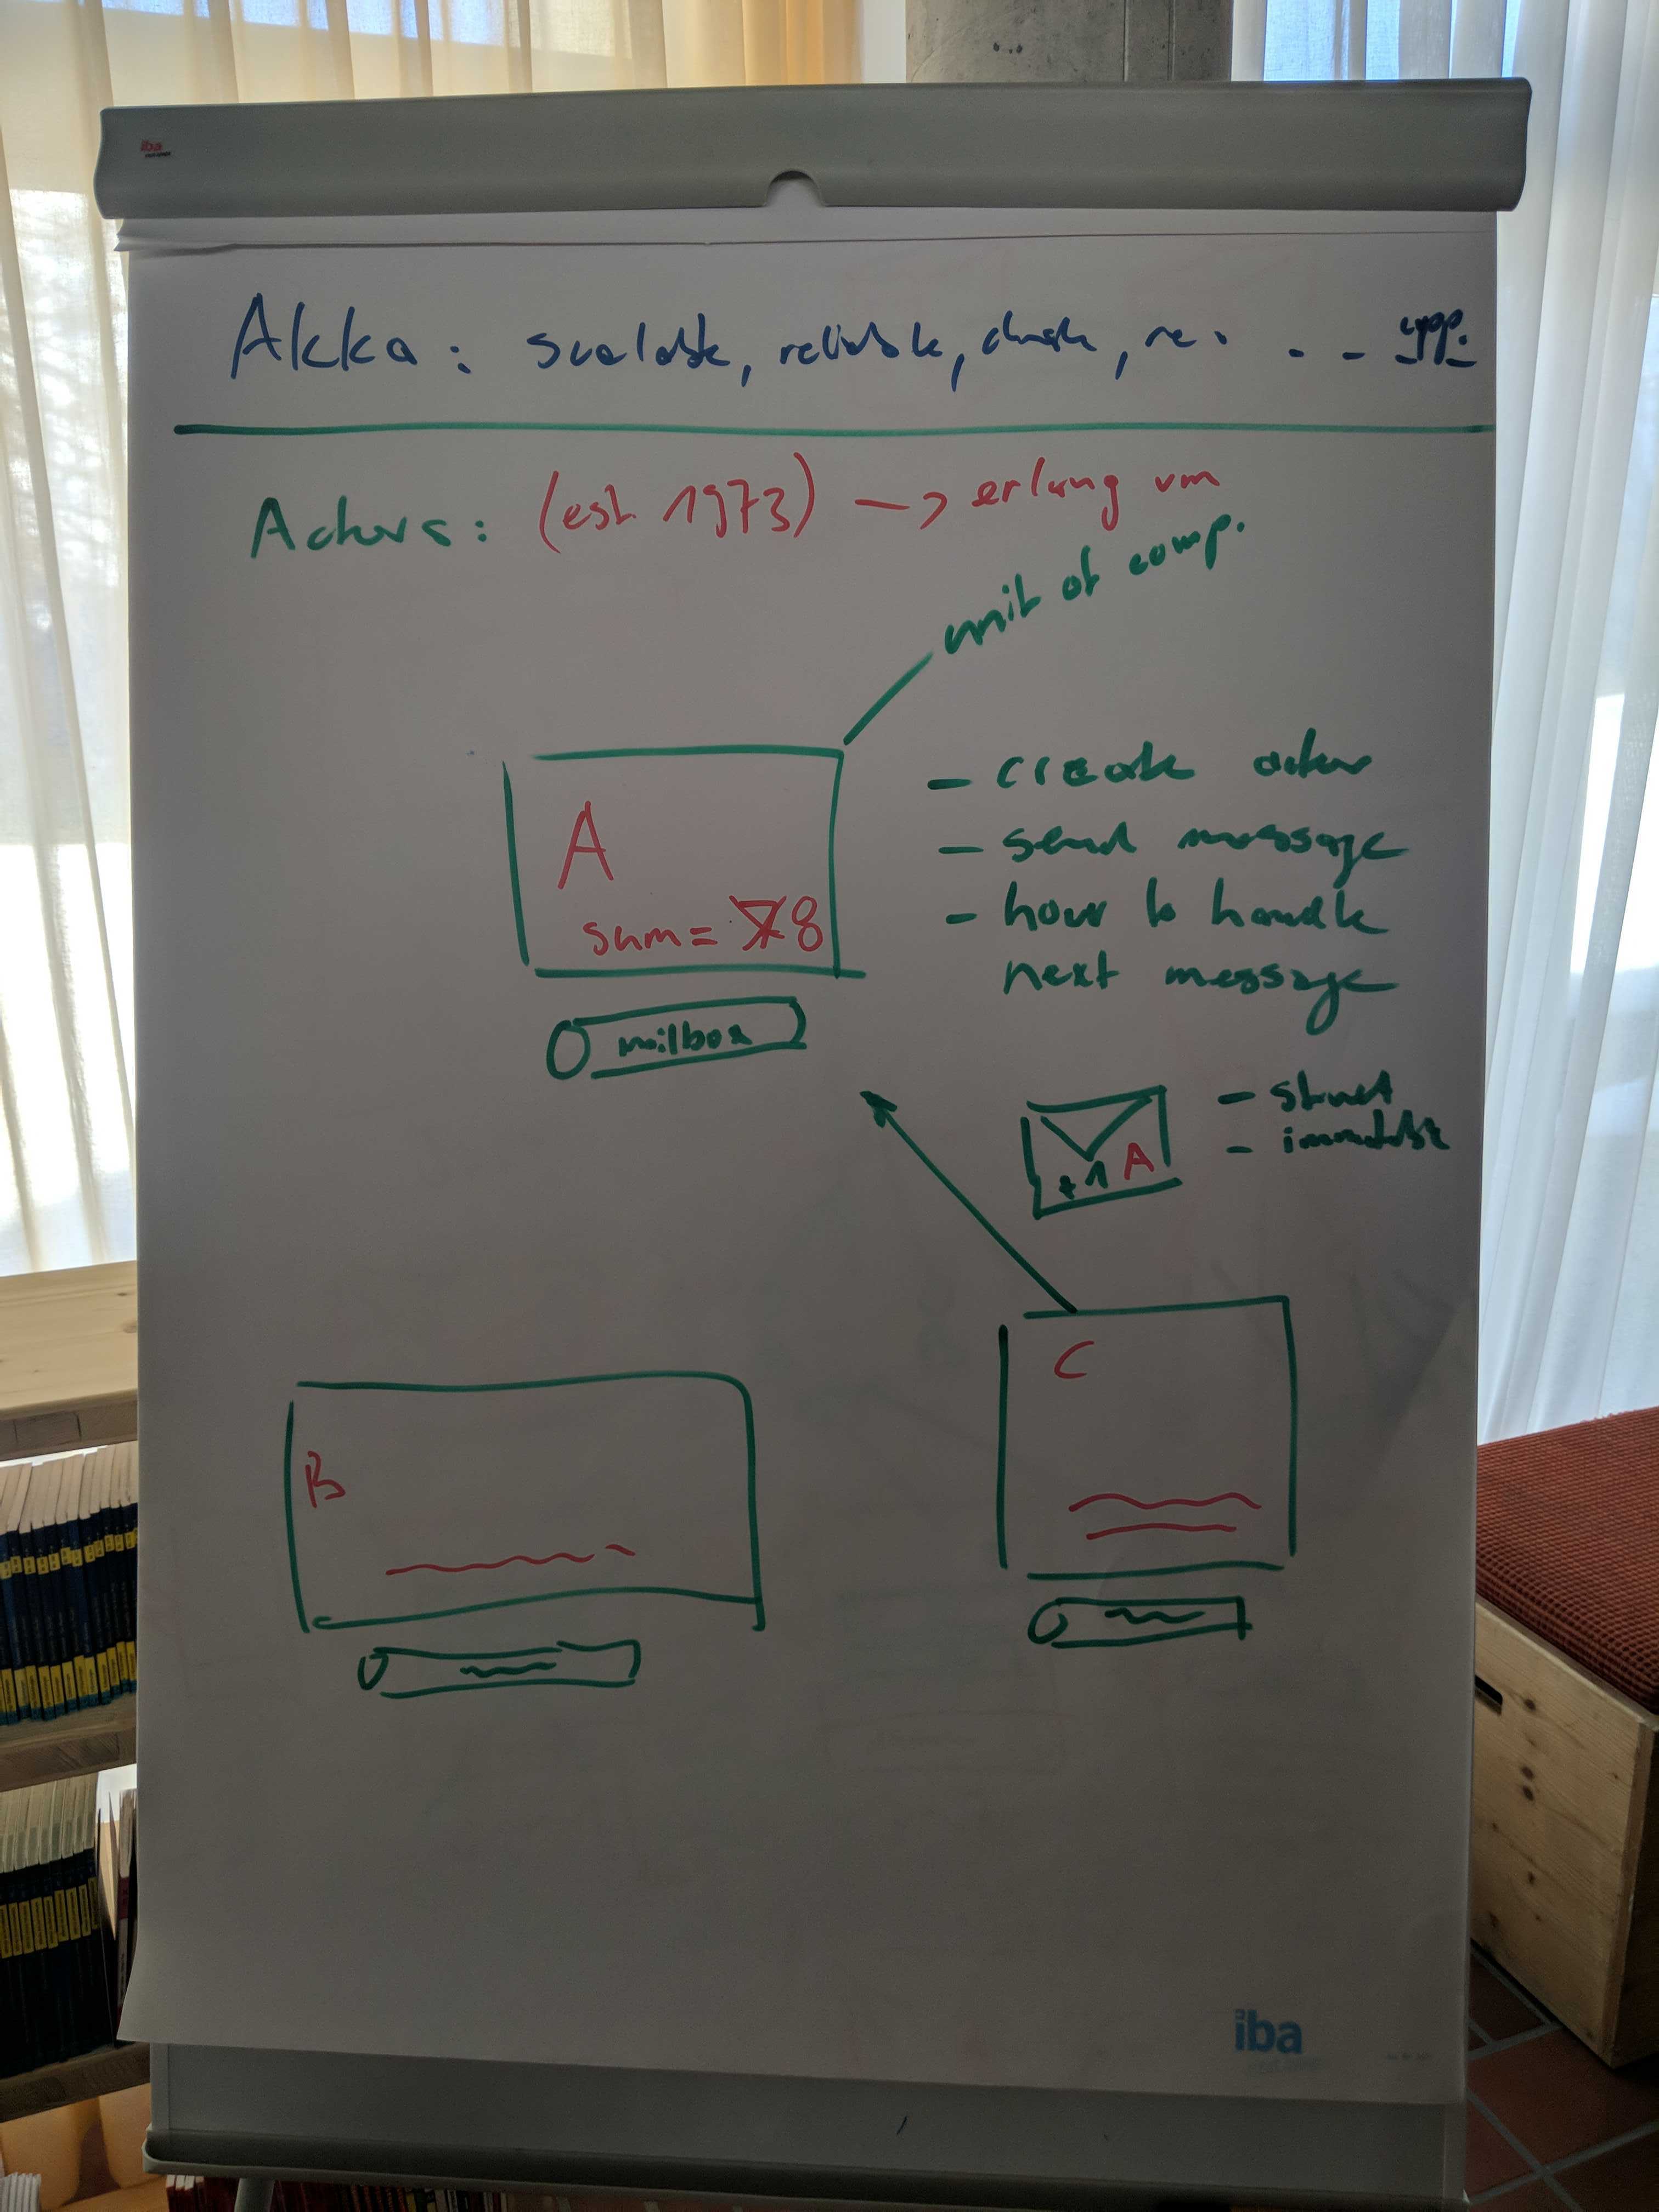 iba
Akka: scalable, reliable, elastic, re. . - app.
Actors: (est 1973) —> erlang vm
unit of comp.
A
sum= 7 8
mailbox
- create actor
- send message
- how to handle
next message
+1 A
- struct
- immutable
C
B
iba